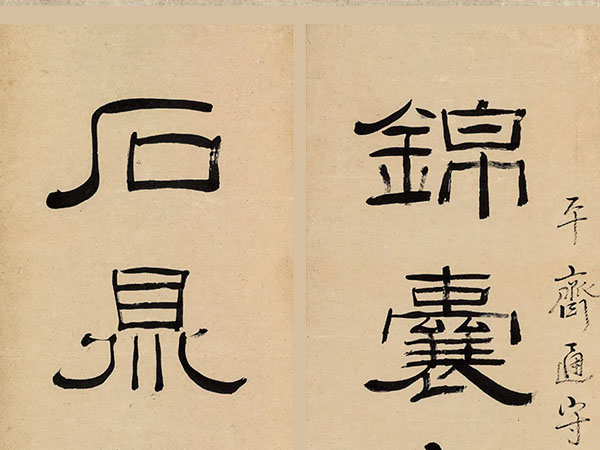 平齊通守
錦囊
石鼎